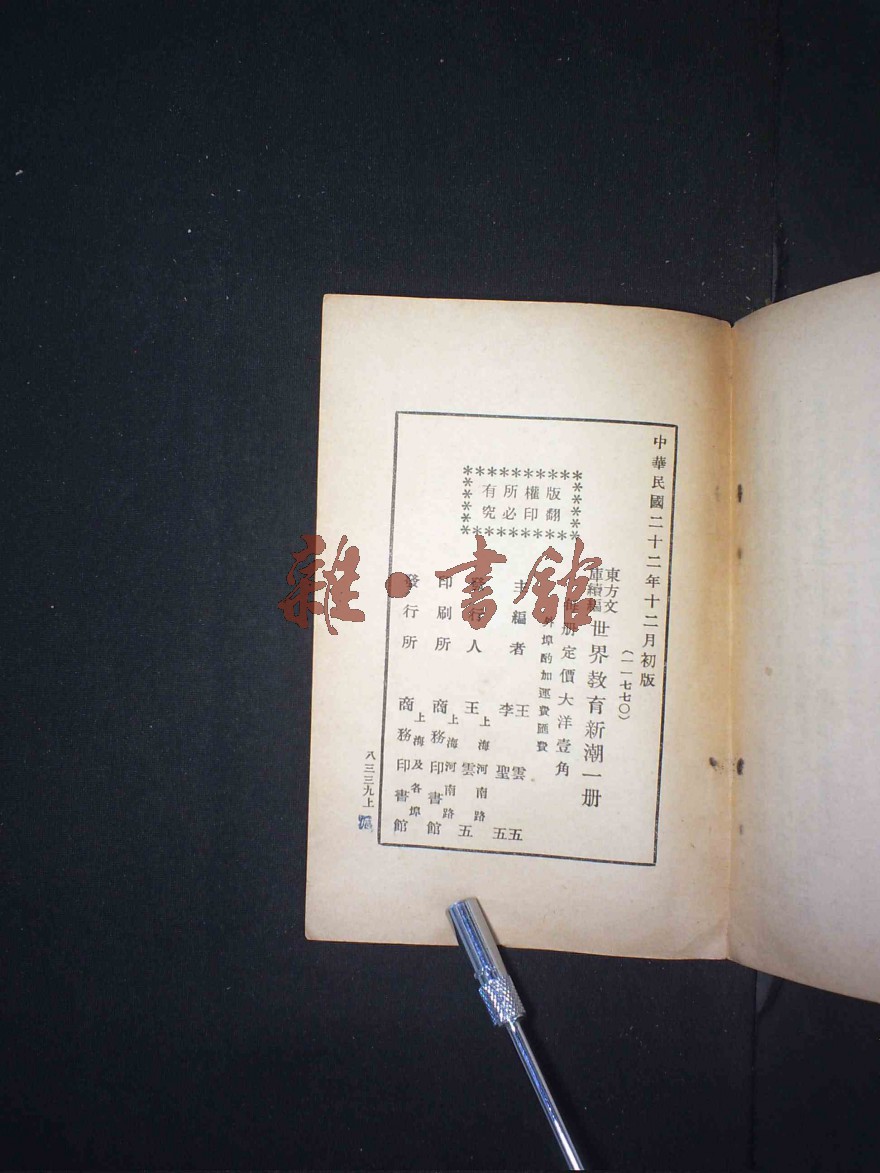 中華民國二十二年十二月初版
（一一七七〇）
東方文
庫續編
世界教育新潮一册
每册定價大洋壹角
外埠酌加運費匯費
版權所有
翻印必究
主編者
王雲五
李聖五
發行人
上海河南路
王雲五
印刷所
上海河南路
商務印書館
發行所
上海及各埠
商務印書館
八三三九上
雜·書館